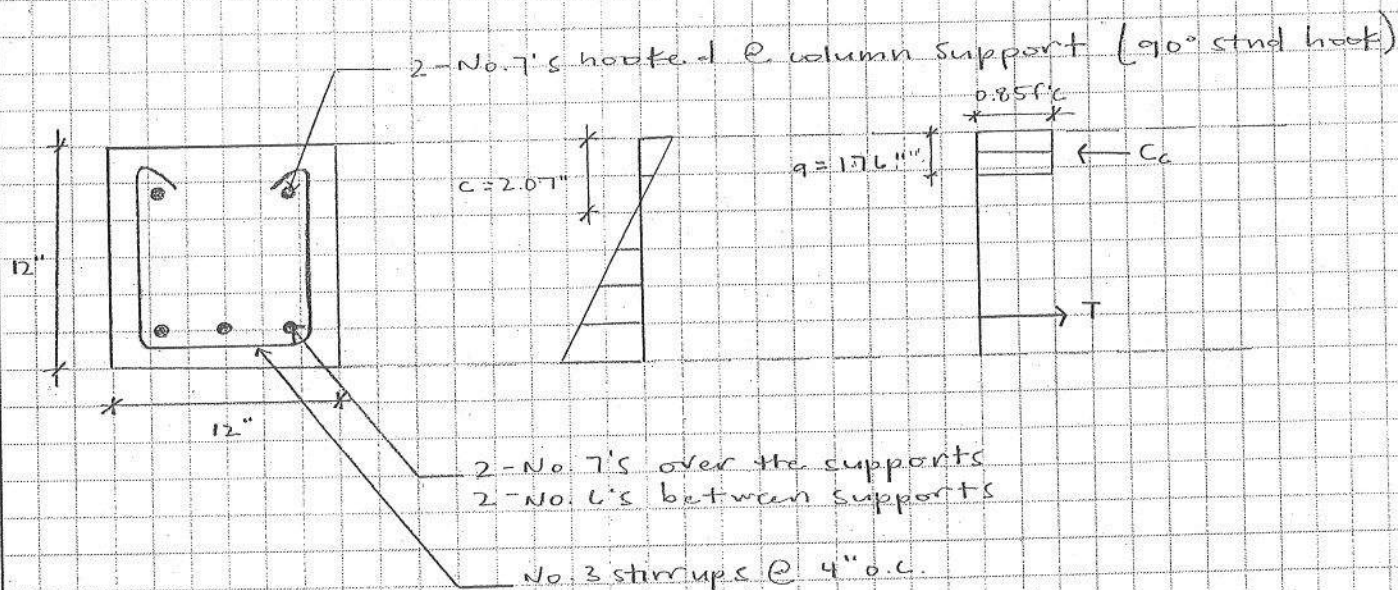 2-No.7's hooked @ column support (90° stnd hook)
0.85f'c
12"
c=2.07"
a=1.76"
Cc
T
12"
2-No. 7's over the supports
2-No. 6's between supports
No. 3 stirrups @ 4" o.c.